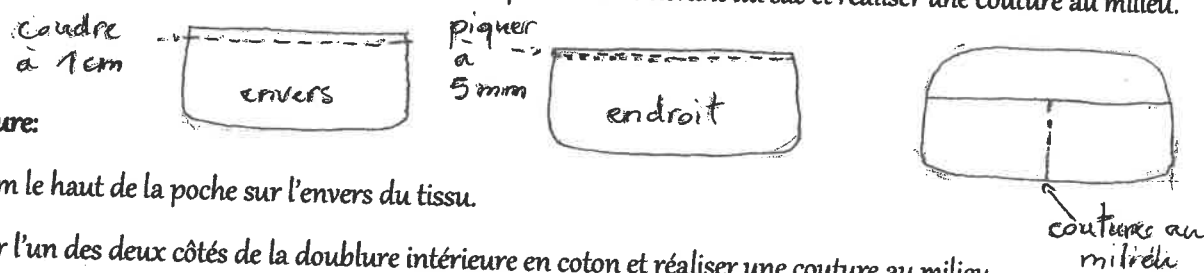 et réaliser une couture au milieu.
coudre
à 1 cm
envers
piquer
à
5 mm
endroit
ure:
m le haut de la poche sur l'envers du tissu.
r l'un des deux côtés de la doublure intérieure en coton et réaliser une couture au milieu.
couture au
milieu